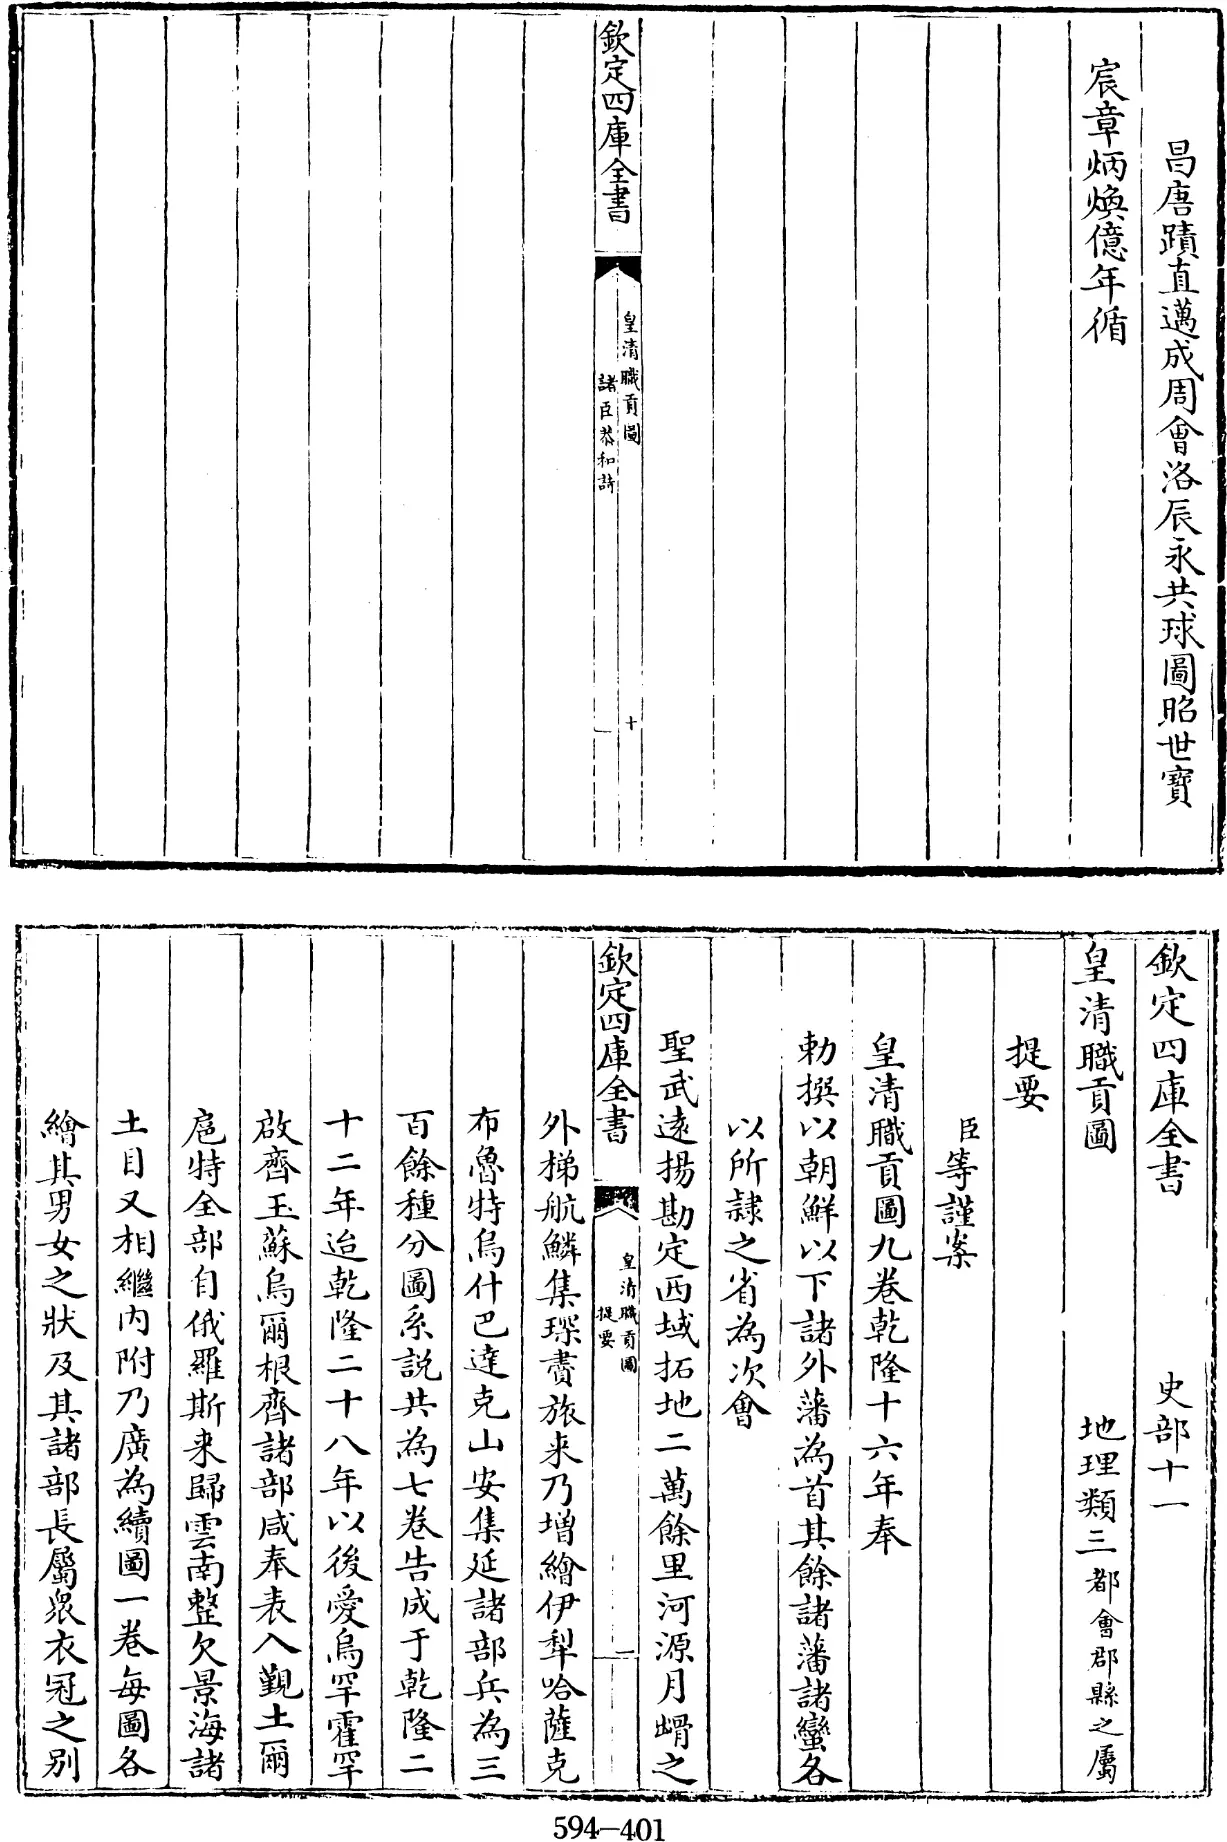 昌唐蹟直邁成周會洛辰永共球圖昭世寶
宸章炳煥億年循
欽定四庫全書
皇清職貢圖
諸臣恭和詩
十
欽定四庫全書
史部十一
皇清職貢圖
地理類三都會郡縣之屬
提要
臣等謹案
皇清職貢圖九卷乾隆十六年奉
勅撰以朝鮮以下諸外藩為首其餘諸藩諸蠻各
以所隷之省為次會
聖武遠揚勘定西域拓地二萬餘里河源月𡺾之
欽定四庫全書
皇清職貢圖
提要
一
外梯航鱗集琛賮旅来乃增繪伊犁哈薩克
布魯特烏什巴達克山安集延諸部共為三
百餘種分圖系說共為七卷告成于乾隆二
十二年迨乾隆二十八年以後愛烏罕霍罕
啟齊玉蘇烏爾根齊諸部咸奉表入覲土爾
扈特全部自俄羅斯来歸雲南整欠景海諸
土目又相繼内附乃廣為續圖一卷每圖各
繪其男女之狀及其諸部長屬衆衣冠之别
594-401